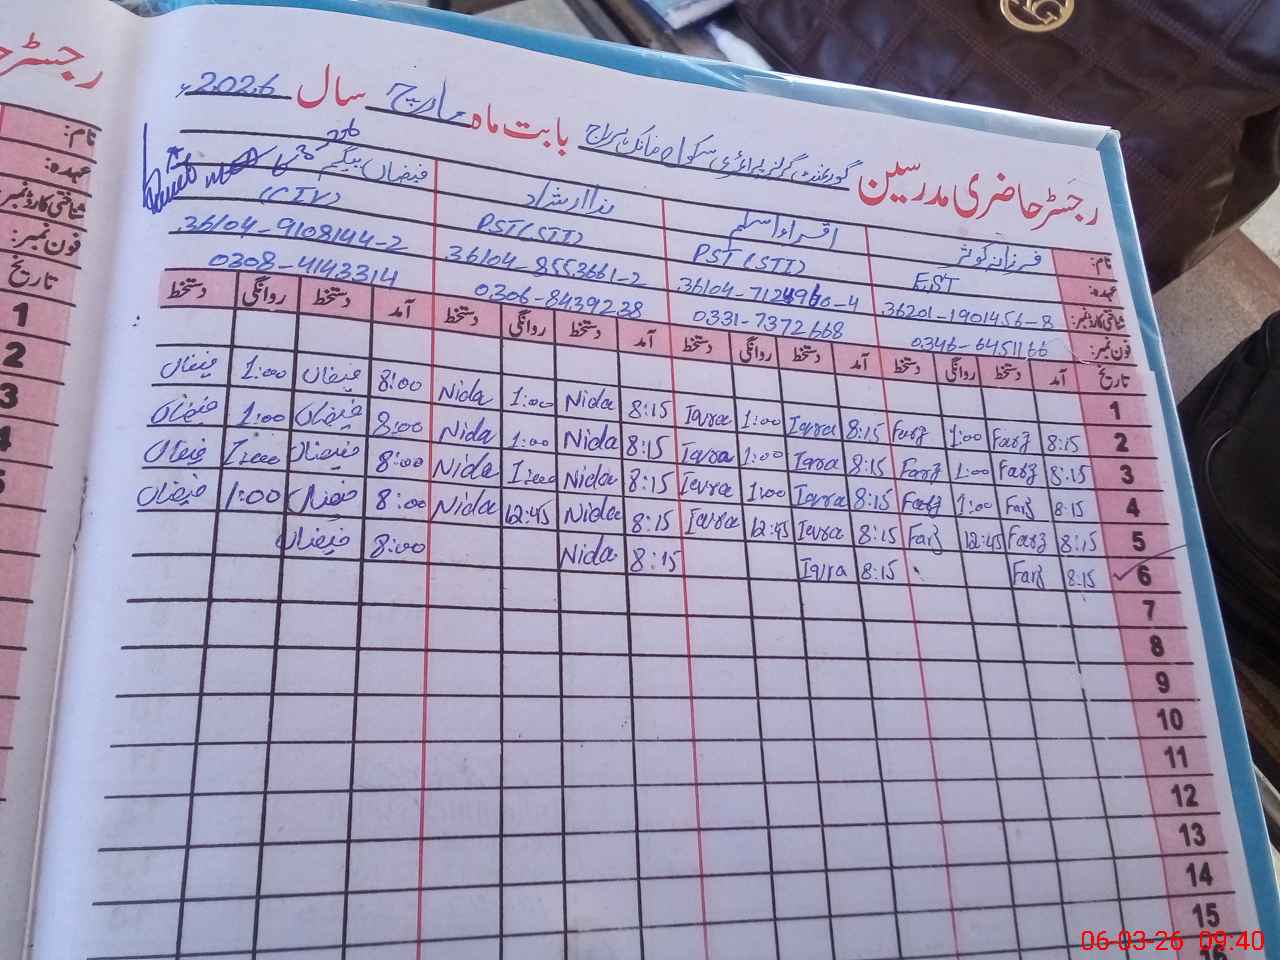 رجسٹر حاضری مدرسین گورنمنٹ گرلز پرائمری سکول بابت ماہ مارچ سال 2026ء
نام: فرزانہ کوثر اقراء اسلم ندا ارشاد فیضاں بیگم
عہدہ: EST PST(STI) PST(STI) (CIV)
شناختی کارڈ نمبر: 36201-1901456-8 36104-8553661-2 36104-9108144-2
فون نمبر: 0346-6451166 0331-7372668 0306-8439238 0308-4143314
تاریخ آمد دستخط روانگی دستخط آمد دستخط روانگی دستخط آمد دستخط روانگی دستخط آمد دستخط روانگی دستخط
1
2 8:15 Farz 1:00 Farz 8:15 Iqra 1:00 Iqra 8:15 Nida 1:00 Nida 8:00 فیضاں 1:00 فیضاں
3 8:15 Farz 1:00 Farz 8:15 Iqra 1:00 Iqra 8:15 Nida 1:00 Nida 8:00 فیضاں 1:00 فیضاں
4 8:15 Farz 1:00 Farz 8:15 Iqra 1:00 Iqra 8:15 Nida 1:00 Nida 8:00 فیضاں 1:00 فیضاں
5 8:15 Farz 12:45 Farz 8:15 Iqra 12:45 Iqra 8:15 Nida 12:45 Nida 8:00 فیضاں 1:00 فیضاں
6 8:15 Farz 8:15 Iqra 8:15 Nida 8:00 فیضاں
7
8
9
10
11
12
13
14
15
16
رجسٹر
نام:
عہدہ:
شناختی کارڈ نمبر:
فون نمبر:
تاریخ
1
2
3
4
5
06-03-26 09:40